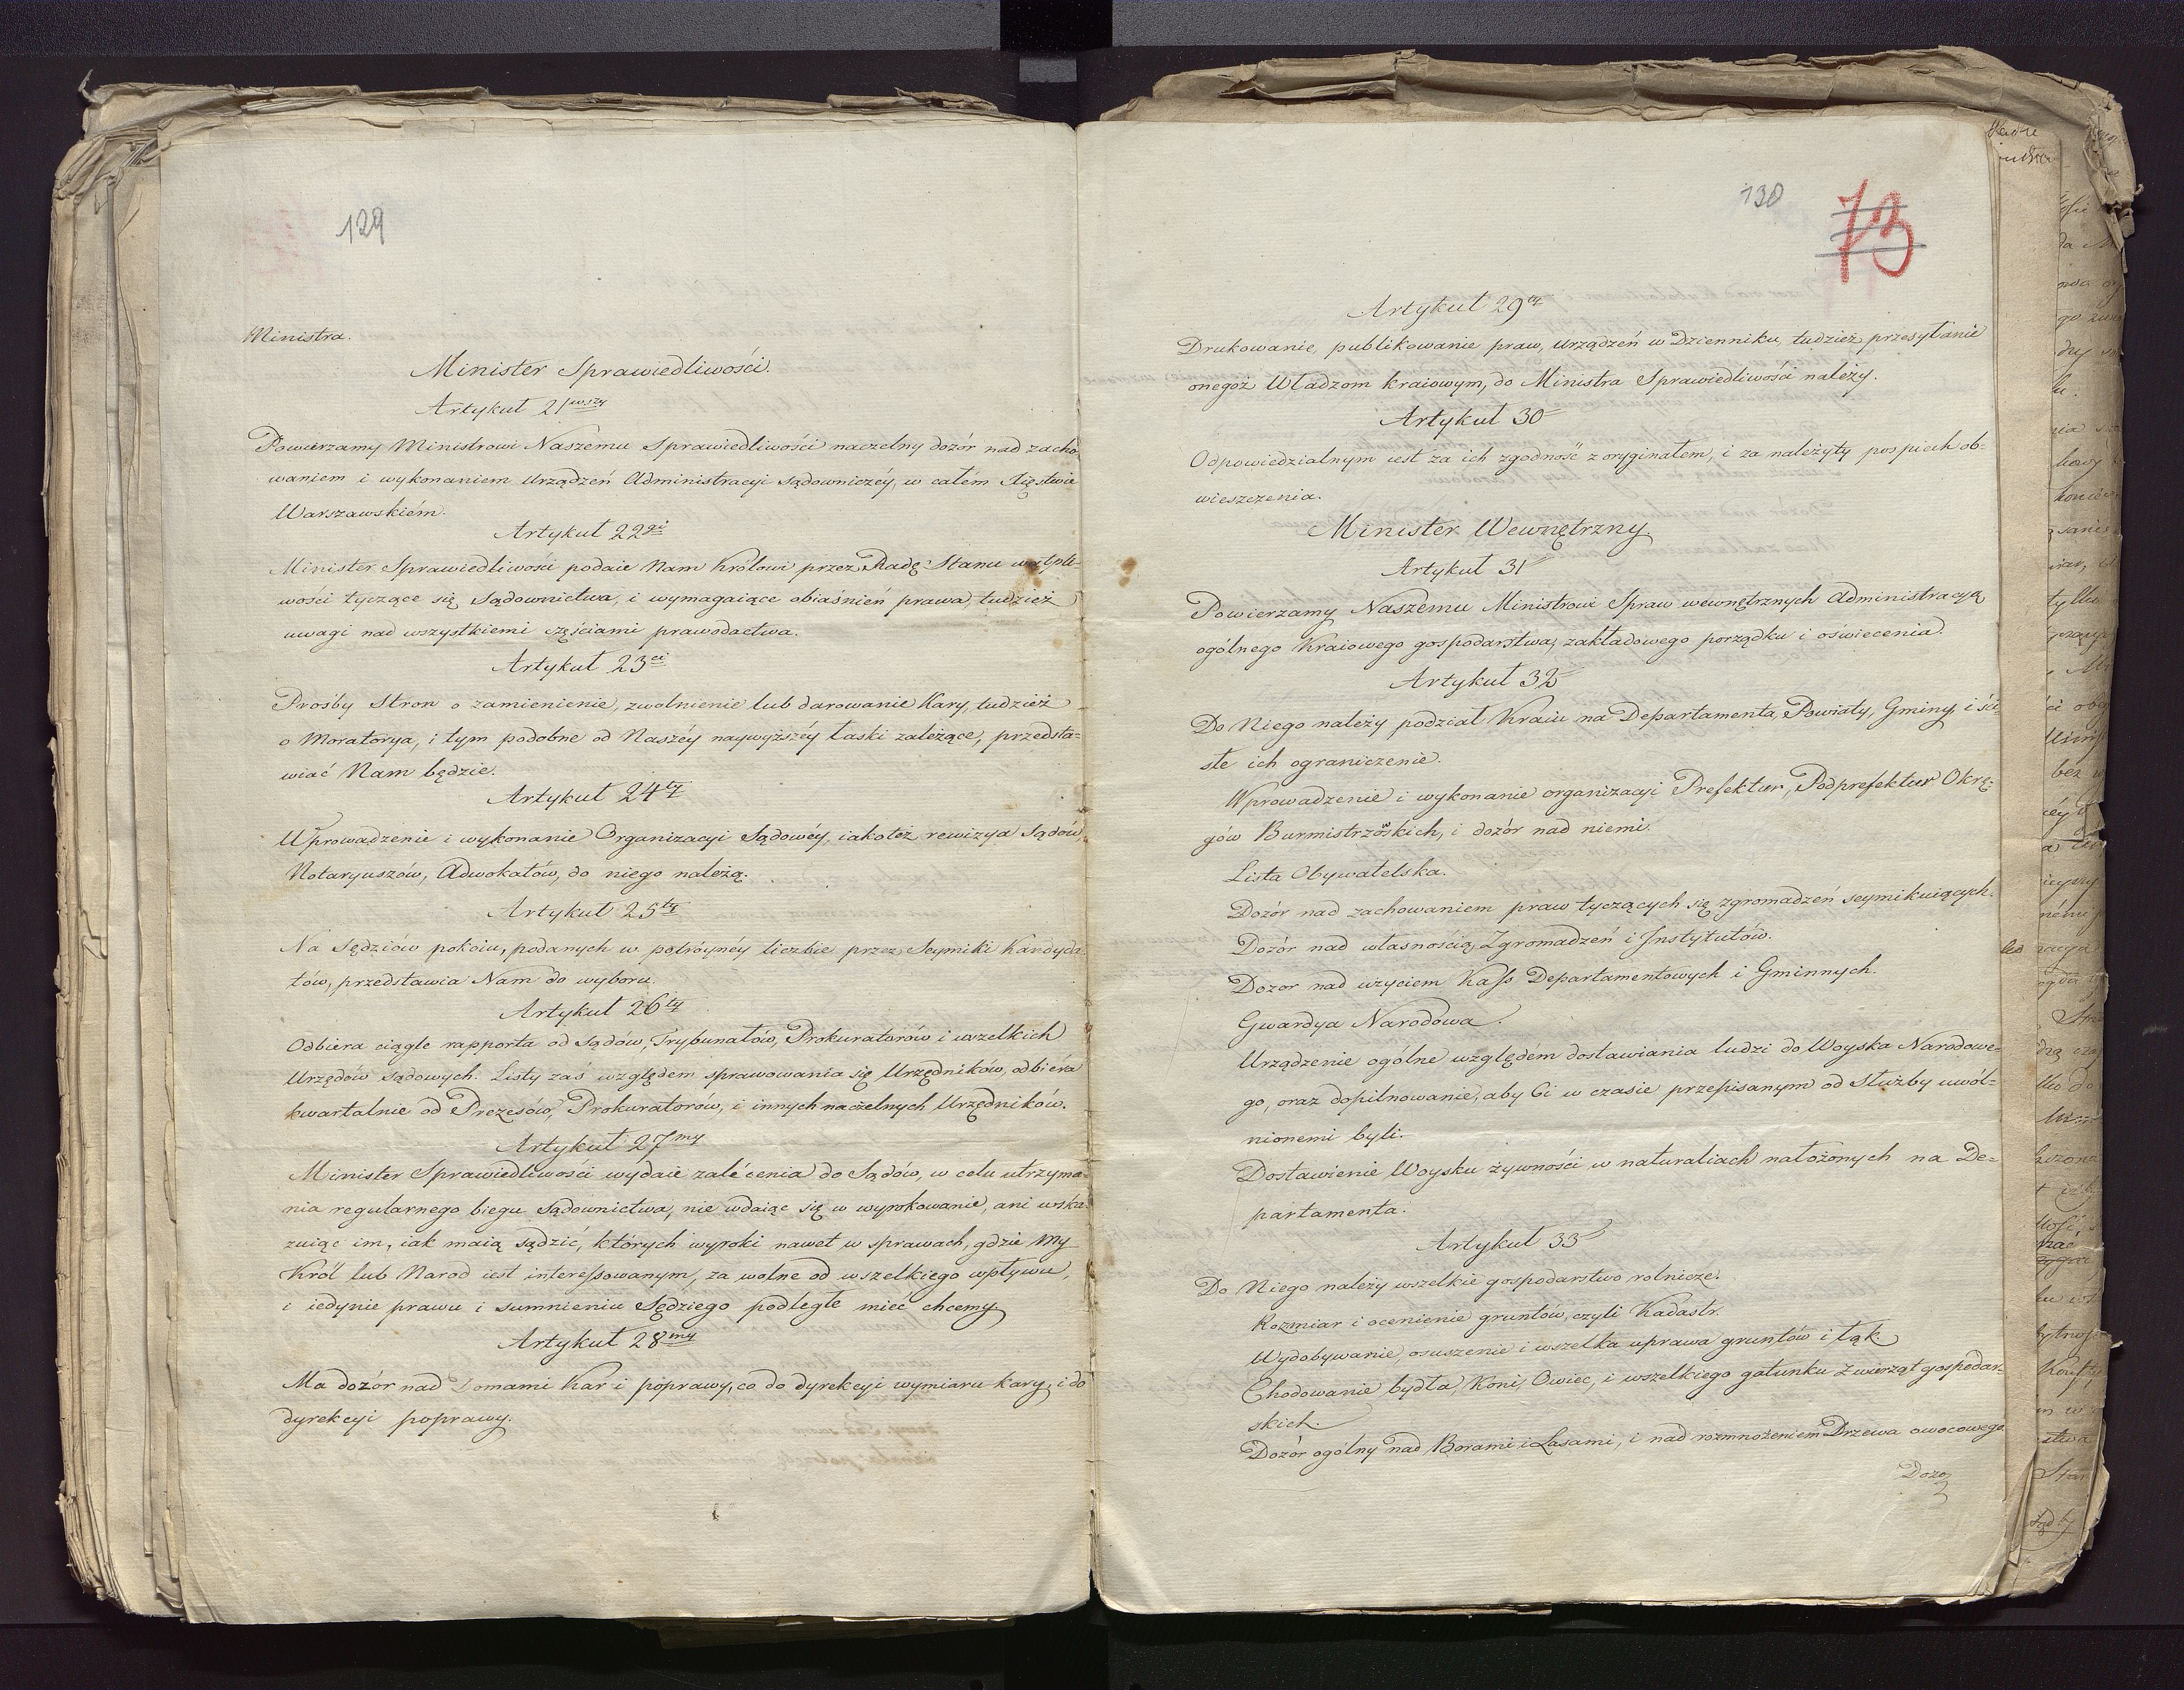 129
Ministra.
Minister Sprawiedliwości.
Artykuł 21wszy
Powierzamy Ministrowi Naszemu Sprawiedliwości naczelny dozór nad zacho-
waniem i wykonaniem Urządzeń Administracyi sądowniczéy, w całém Xięstwie
Warszawskiém.
Artykuł 22gi
Minister Sprawiedliwości podaie Nam Królowi przez Radę Stanu wątpli-
wości tyczące się Sądownictwa, i wymagaiące obiaśnień prawa, tudzież
uwagi nad wszystkiemi częściami prawodactwa.
Artykuł 23ci
Prośby Stron o zamienienie, zwolnienie lub darowanie Kary, tudzież
o Moratorya, i tym podobne od Naszéy naywyższéy łaski zależące, przedsta-
wiać Nam będzie.
Artykuł 24ty
Wprowadzenie i wykonanie Organizacyi Sądowéy, iakoteż rewizya Sądów,
Notaryuszów, Adwokatów, do niego należą.
Artykuł 25ty
Na Sędziów pokoiu, podanych w potróynéy liczbie przez Seymiki Kandyda-
tów, przedstawia Nam do wyboru.
Artykuł 26ty
Odbiera ciągle rapporta od Sądów, Trybunałów, Prokuratorów i wszelkich
Urzędów sądowych. Listy zaś względem sprawowania się Urzędników, odbiéra
kwartalnie od Prezesów, Prokuratorów, i innych naczelnych Urzędników.
Artykuł 27my
Minister Sprawiedliwości wydaie zalécenia do Sądów, w celu utrzyma-
nia regularnego biegu Sądownictwa, nie wdaiąc się w wyrokowanie, ani wska-
zuiąc im, iak maią sądzić, których wyroki nawet w sprawach, gdzie My
Król lub Narod iest interessowanym, za wolne od wszelkiego wpływu,
i iedynie prawu i sumnieniu Sędziego podległe mieć chcemy
Artykuł 28my
Ma dozór nad Domami Kar i poprawy, co do dyrekcyi wymiaru kary, i do
dyrekcyi poprawy.
130
73
Artykuł 29ty
Drukowanie, publikowanie praw, Urządzeń w Dzienniku, tudzież przesyłanie
onegoż Władzom kraiowym, do Ministra Sprawiedliwości należy.
Artykuł 30
Odpowiedzialnym iest za ich zgodność z oryginałem, i za należyty pospiech ob-
wieszczenia.
Minister Wewnętrzny
Artykuł 31
Powierzamy Naszemu Ministrowi Spraw wewnętrznych Administracyą
ogólnego Kraiowego gospodarstwa, zakładowego porządku i oświecenia.
Artykuł 32
Do Niego należy podział Kraiu na Departamenta, Powiaty, Gminy, i ści-
słe ich ograniczenie.
Wprowadzenie i wykonanie organizacyi Prefektur, Podprefektur Okrę-
gów Burmistrzowskich, i dozór nad niemi.
Lista Obywatelska.
Dozór nad zachowaniem praw tyczących się zgromadzeń seymikuiących.
Dozór nad własnością Zgromadzeń i Instytutów.
Dozor nad użyciem Kass Departamentowych i Gminnych.
Gwardya Narodowa.
Urządzenie ogólne względem dostawiania ludzi do Woyska Narodowe-
go, oraz dopilnowanie, aby Ci w czasie przepisanym od Służby uwól-
nionemi byli.
Dostawienie Woysku żywności w naturaliach nałożonych na De-
partamenta.
Artykuł 33
Do Niego należy wszelkie gospodarstwo rolnicze.
Rozmiar i ocenienie gruntów, czyli Kadastr.
Wydobywanie, osuszenie i wszelka uprawa gruntów i łąk.
Chodowanie bydła, Koni, Owiec, i wszelkiego gatunku Zwierząt gospodar-
skich.
Dozór ogólny nad Borami i Lasami, i nad rozmnożeniem Drzewa owocowego
Dozo